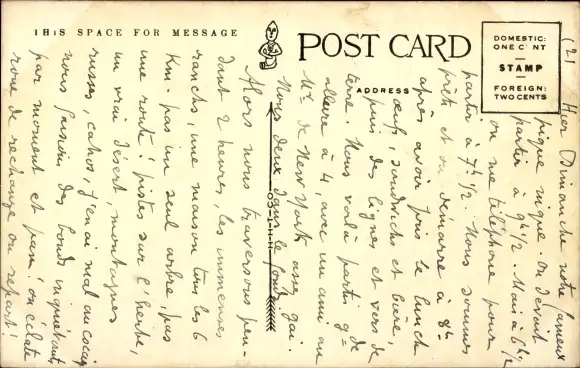 THIS SPACE FOR MESSAGE
POST CARD
ADDRESS
DOMESTIC:
ONE CENT
STAMP
FOREIGN:
TWO CENTS
O-S-I-H-H
(2) Hier Dimanche notre fameux
pique nique. On devait
partir à 9h 1/2. Mais à 6h 1/2
on me téléphone pour
partir à 7h 1/2. Nous sommes
prêts et on démarre à 8h
après avoir pris le lunch
œufs, sandwichs et bière,
puis des lignes et vers de
terre. Nous voilà partis gde
allure à 4, avec un ami au
Mr de New York assez gai.
Nous deux dans le fond
Alors nous traversons pen-
dant 2 heures, les immenses
ranchs, une maison tous les 6
Km. pas un seul arbre, pas
une route, pistes sur l'herbe,
un vrai désert, montagnes
russes, cahos, j'en ai mal au coccyx
nous faisions des bonds inquiétants
par moment et pan! on éclate
roue de rechange on repart!